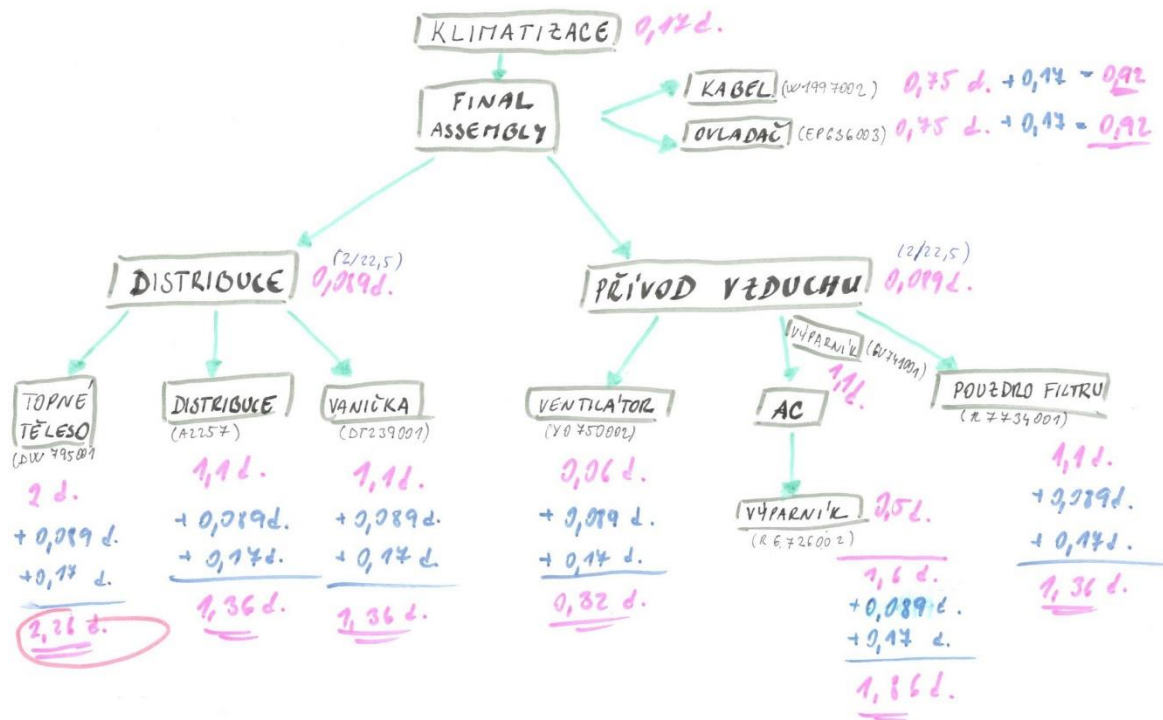 KLIMATIZACE 0,17 d.
FINAL
ASSEMBLY
KABEL (W1997002) 0,75 d. + 0,17 = 0,92
OVLADAČ (EP636003) 0,75 d. + 0,17 = 0,92
DISTRIBUCE (2/22,5)
0,089d.
PŘÍVOD VZDUCHU (2/22,5)
0,089d.
TOPNÉ
TĚLESO
(DW 795001
2 d.
+ 0,089 d.
+0,17 d.
2,26 d.
DISTRIBUCE
(A2257)
1,1 d.
+ 0,089d.
+ 0,17d.
1,36 d.
VANIČKA
(DT239001)
1,1 d.
+ 0,089d.
+ 0,17 d.
1,36 d.
VENTILÁTOR
(YO 750002)
0,06 d.
+ 0,089 d.
+ 0,17 d.
0,32 d.
VÝPARNÍK
1,1d.
AC
VÝPARNÍK 0,5d.
(R6726002)
1,6 d.
+0,089 d.
+0,17 d.
1,86 d.
POUZDRO FILTRU
(R7734001)
1,1 d.
+ 0,089d.
+ 0,17d.
1,36 d.